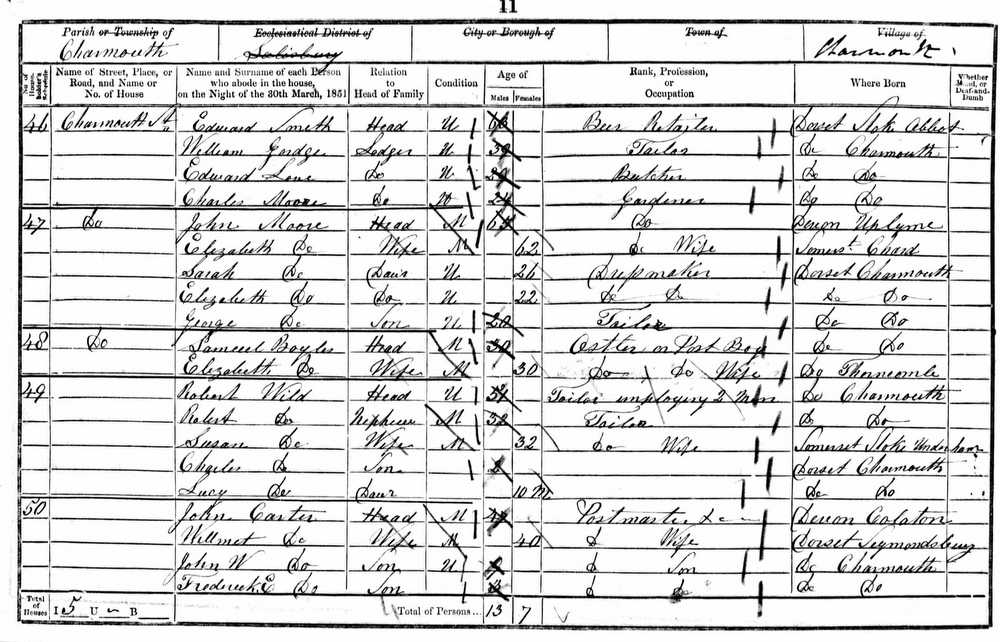 11
Parish or Township of Ecclesiastical District of City or Borough of Town of Village of
Charmouth Salisbury Charmouth
No. of House-holder's Schedule Name of Street, Place, or Road, and Name or No. of House Name and Surname of each Person who abode in the house, on the Night of the 30th March, 1851 Relation to Head of Family Condition Age of Males Females Rank, Profession, or Occupation Where Born Whether Blind, or Deaf-and-Dumb
46 Charmouth St Edward Smith Head U Beer Retailer Dorset Stoke Abbot
William Gordge Lodger U 39 Tailor Do Charmouth
Edward Love Do U 29 Butcher Do Do
Charles Moore Do U 24 Gardener Do Do
47 Do John Moore Head M 65 Do Devon Uplyme
Elizabeth Do Wife M 62 Do Wife Somerst Chard
Sarah Do Daur U 26 Dressmaker Dorset Charmouth
Elizabeth Do Do U 22 Do Do Do Do
George Do Son U 20 Tailor Do Do
48 Do Samuel Boyles Head M 30 Ostler or Post Boy Do Do
Elizabeth Do Wife M 30 Do Do Wife Do Thorncombe
49 Robert Wild Head U Tailor employing 2 Men Do Charmouth
Robert Do Nephew M 32 Tailor Do Do
Susan Do Wife M 32 Do Wife Somerset Stoke Under ham
Charles Do Son Dorset Charmouth
Lucy Do Daur 10 M Do Do
50 John Carter Head M Postmaster &c Devon Colaton
Willmet Do Wife M 40 d Wife Dorset Symondsbury
John W Do Son U d Son Do Charmouth
Frederick E Do Son 3 d Do Do Do
Total of Houses I 5 U B Total of Persons... 13 7